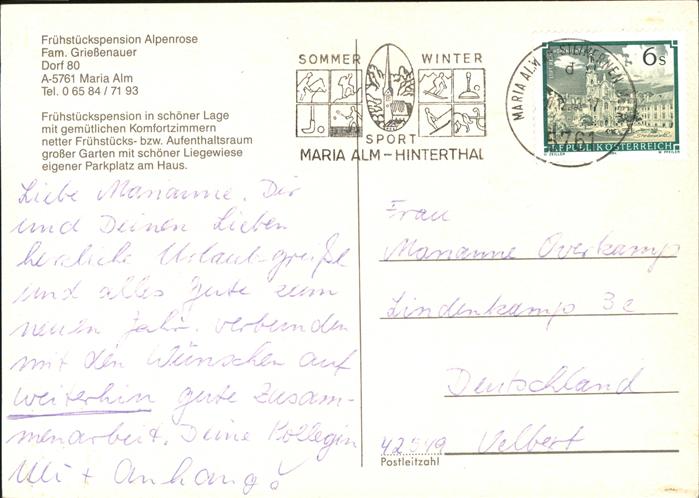 Frühstückspension Alpenrose
Fam. Grießenauer
Dorf 80
A-5761 Maria Alm
Tel. 0 65 84 / 71 93
Frühstückspension in schöner Lage
mit gemütlichen Komfortzimmern
netter Frühstücks- bzw. Aufenthaltsraum
großer Garten mit schöner Liegewiese
eigener Parkplatz am Haus.
SOMMER WINTER
SPORT
MARIA ALM – HINTERTHAL
MARIA ALM
5761
6 S
REPUBLIK ÖSTERREICH
Liebe Marianne. Dir
und Deinen Lieben
herzliche Urlaubsgrüße
und alles Gute zum
neuen Jahr, verbunden
mit den Wünschen auf
weiterhin gute Zusam-
menarbeit. Deine Kollegin
Uli + Anhang!
Frau
Marianne Overkamp
Lindenkamp 3c
Deutschland
42549 Velbert
Postleitzahl